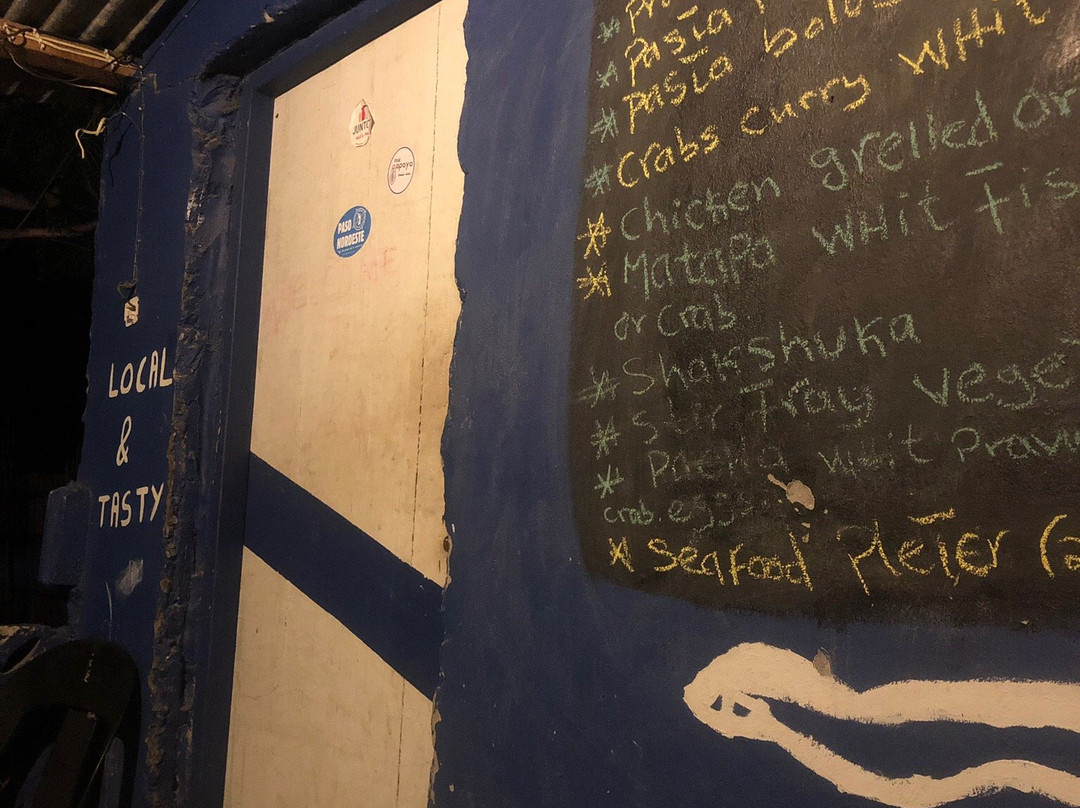 LOCAL
&
TASTY
JUNTO
the
papaya
PASO
NOROESTE
* Pasta
* Pasta bolo
* Crabs curry WHit
* Chicken grelled or
* Matapa WHit Fis
or crab
* Shakshuka
* Stir Fray Veget
* WHit Prawn
crab. eggs
* Seafood Pleter (2